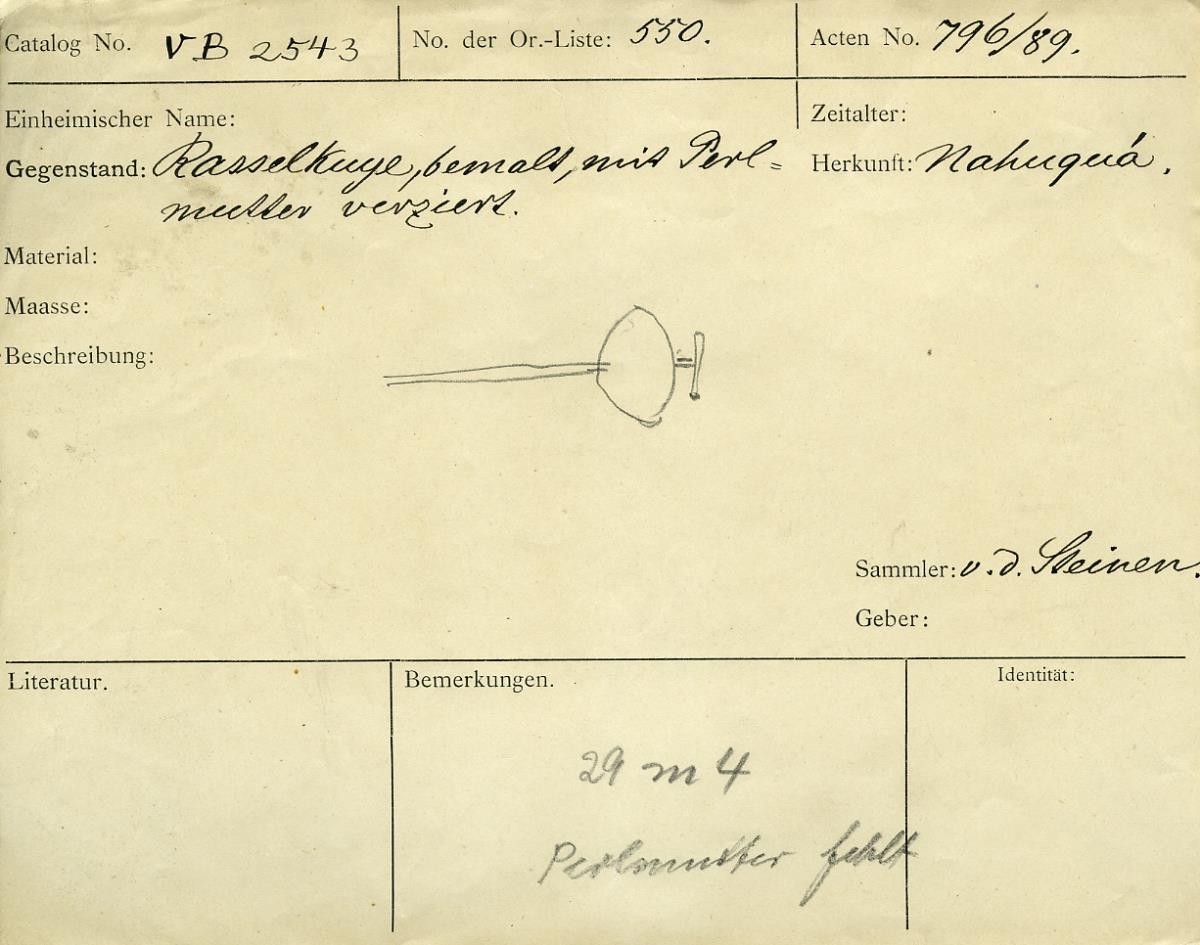 Catalog No. VB 2543
No. der Or.-Liste: 550.
Acten No. 796/89.
Einheimischer Name:
Zeitalter:
Gegenstand: Rasselkuye, bemalt, mit Perl=
mutter verziert.
Herkunft: Nahuquá.
Material:
Maasse:
Beschreibung:
Sammler: v. d. Steinen.
Geber:
Literatur.
Bemerkungen.
Identität:
29 m 4
Perlmutter fehlt